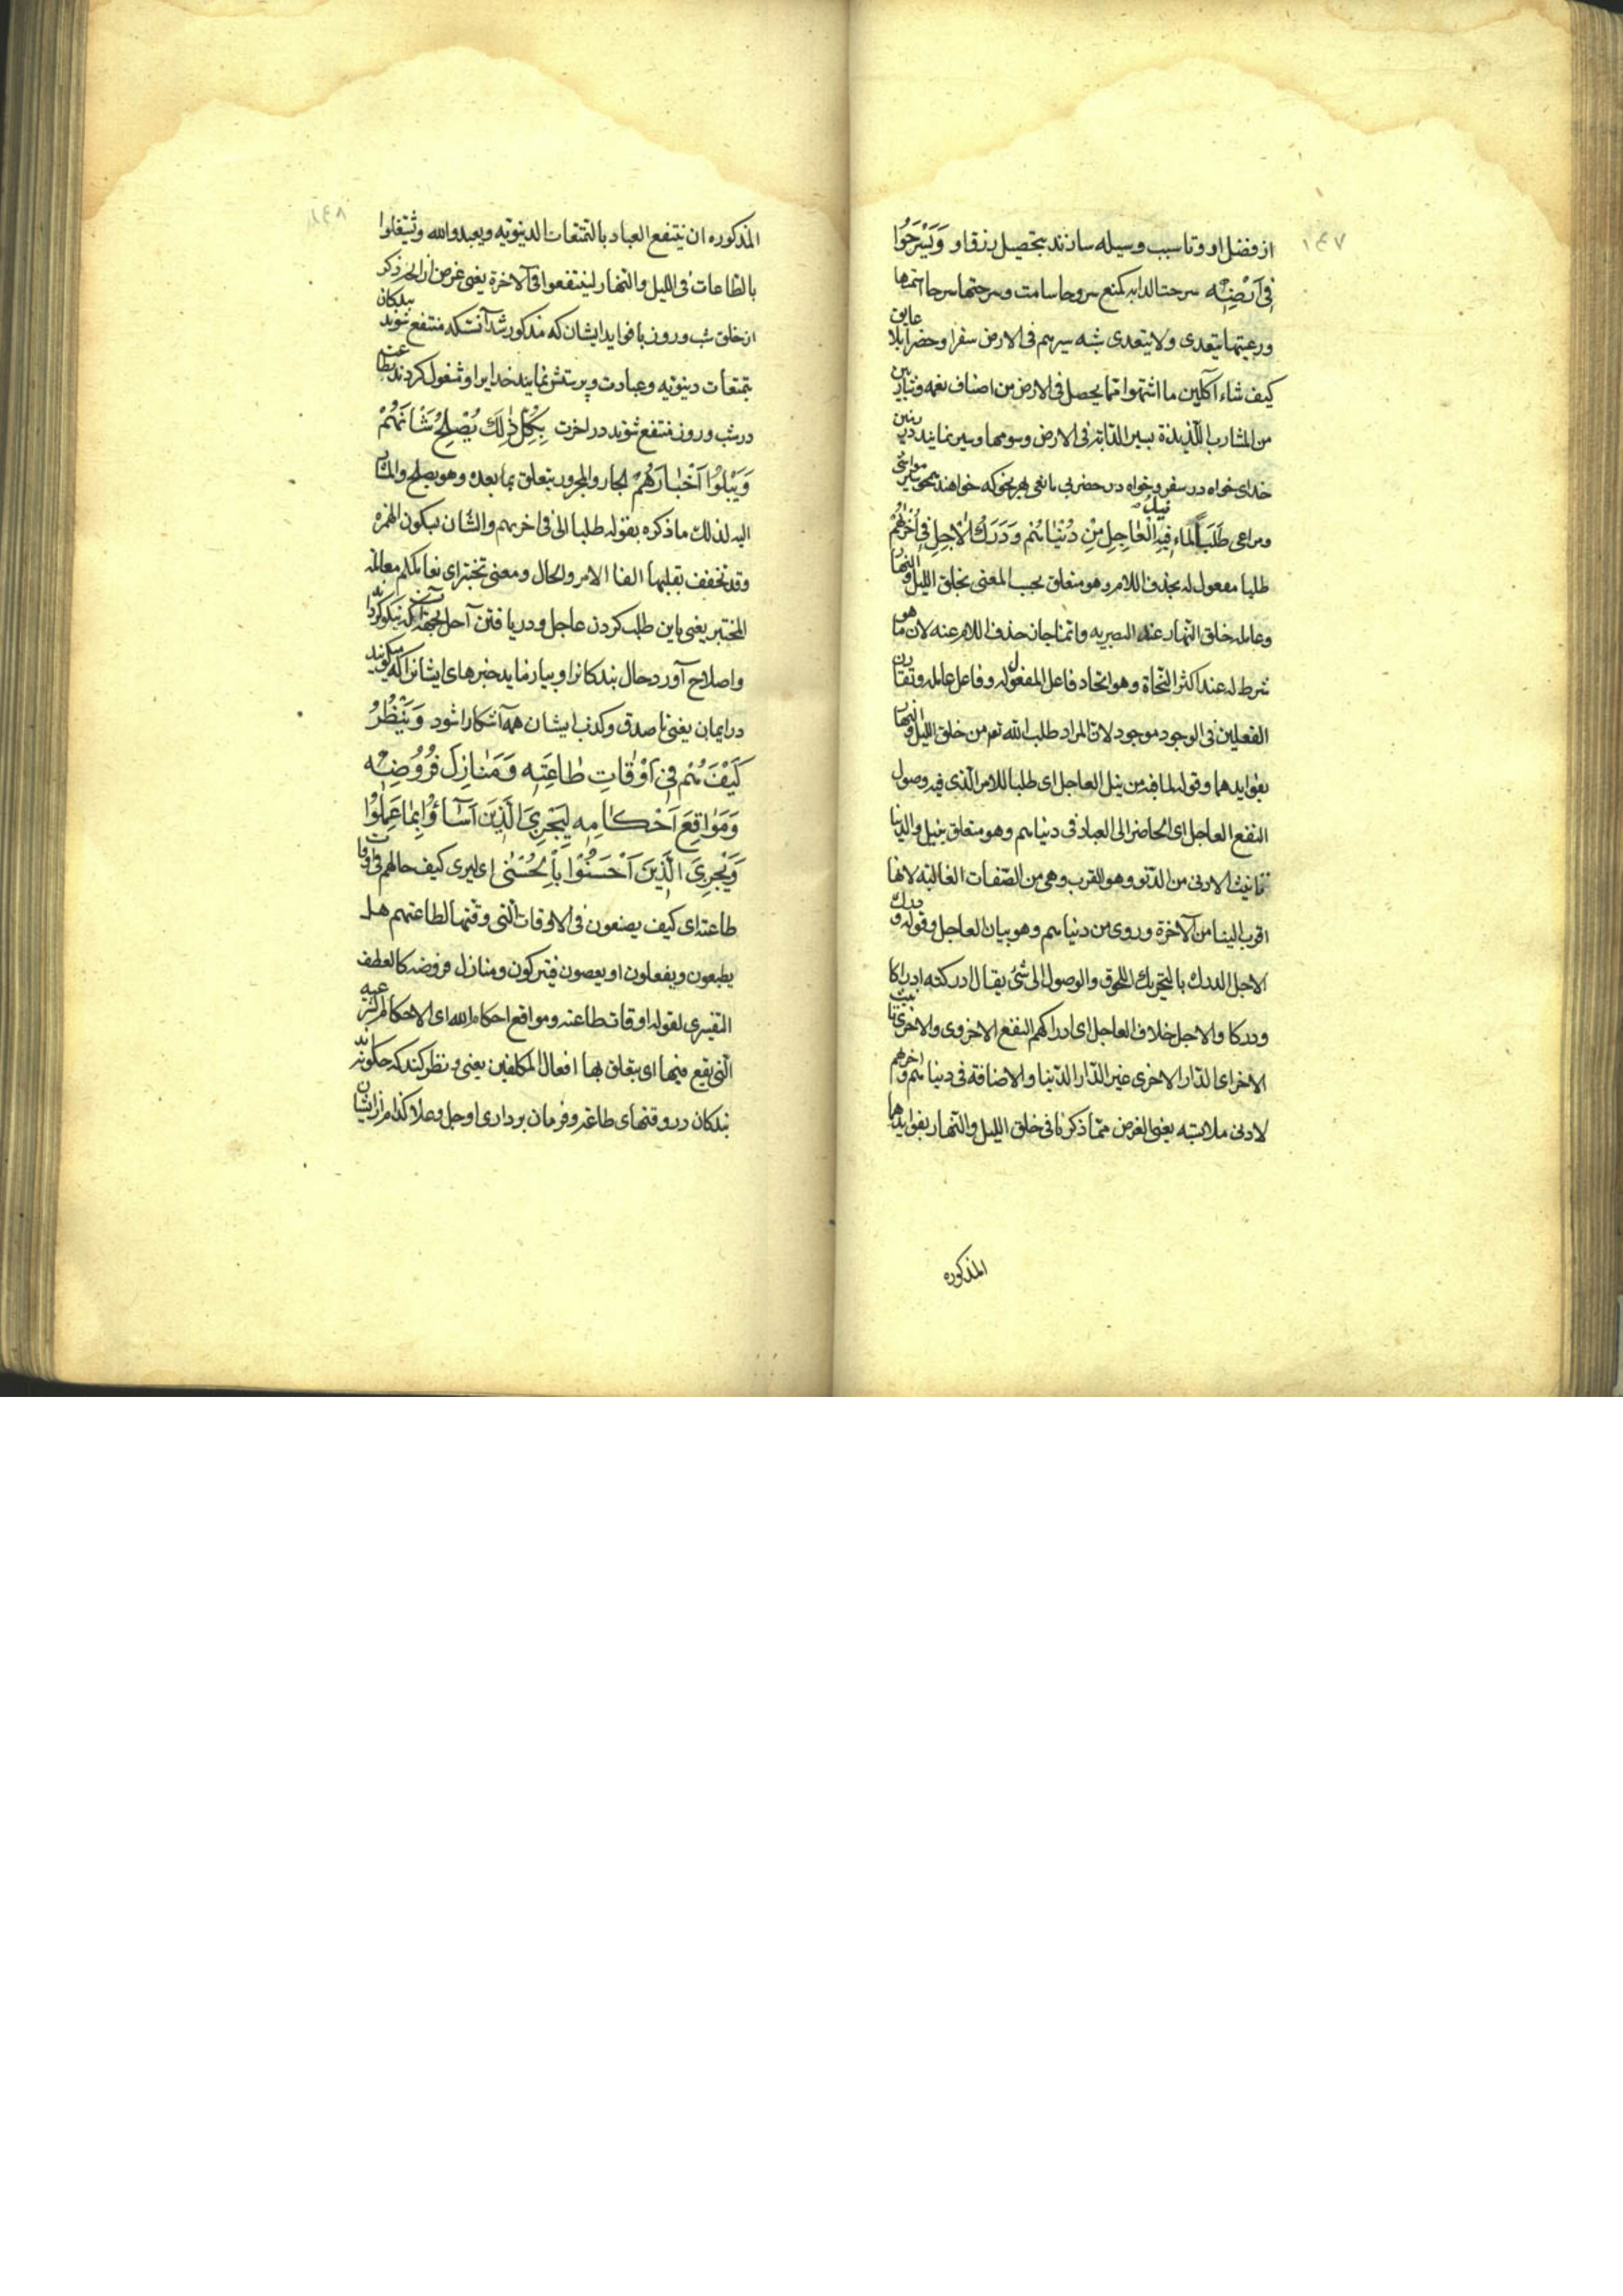 ١٤٧
از فضل او و تا سبب و وسیله سازند بتحصیل رزق او وَيَسْرَحُوا
فِي اَرْضِهِ سرحت الدابه کمنع سروحا سامت و سرحتها سرحا اسمتها
ورعیتها یتعدی ولا یتعدی شبه سیرهم فی الارض سفرا وحضرا بلا عایق
کیف شاء آکلین ما اشتهوا مما یحصل فی الارض من اصناف نعمه وشاربین
من المشارب اللذیذة بسیر الدابة فی الارض وسومها و سیر نمایند در زمین
خدای خواه در سفر و خواه در حضر بی مانعی بهر نحو که خواهند همچو سیر مواشی
ومراعی طَلَباً لِمَاءِ فِيهِ نیل الْعَاجِلِ مِنْ دُنْيَاهُمْ وَدَرَكُ الْاٰجِلِ فِي اُخْرٰيهُمْ
طلبا مفعول له بحذف اللام وهو متعلق بحسب المعنی بخلق اللیل والنهار
وعامله خلق النهار عند البصریه وانما جاز حذف اللام عنه لان ما هو
شرط له عند اکثر النحاة وهو اتحاد فاعل المفعول له وفاعل عامله وتقارن
الفعلین فی الوجود موجود لان المراد طلب الله تعم من خلق اللیل والنهار
بفوایدهما وقوله لما فیه من نیل العاجل ای طلبا للامر الذی فیه وصول
النفع العاجل ای الحاضر الی العباد فی دنیاهم وهو متعلق بنیل والدنیا
تانیث الادنی من الدنو وهو القرب وهی من الصفات الغالبة لانها
اقرب الینا من الآخرة وروی من دنیاهم وهو بیان العاجل وقوله ودرك
الاجل الدرك بالتحریك اللحوق والوصول الی شئ یقال ادرکته ادراکا
ودرکا والاجل خلاف العاجل ای ادراکهم النفع الاخروی والاخری تانیث
الاخر ای الدار الاخری غیر الدار الدنیا والاضافة فی دنیاهم و اخرهم
لادنی ملابسة یعنی الغرض مما ذکرنا فی خلق اللیل والنهار بفوایدهما
المذکوره
١٤٨
المذکوره ان ینتفع العباد بالتمتعات الدنیویه ویعبدوا الله وشتغلوا
بالطاعات فی اللیل والنهار لینتفعوا فی الآخرة یعنی غرض از آنچه ذکر
از خلق شب و روز با فواید ایشان که مذکور شد آنست که منتفع شوند بندکان
بتمتعات دینویه و عبادت و پرستش نمایند خدایرا و مشغول کردند بطاعت
در شب و روز منتفع شوند در اخرت بِكُلِّ ذٰلِكَ يُصْلِحُ شَانَهُمْ
وَيَبْلُوا اَخْبَارَهُمْ الجار والمجرور یتعلق بما بعده وهو یصلح والمشار
الیه لذلك ما ذکره بقوله طلبا الی فی اخریهم والشان بسکون الهمزه
وقد تخفف بقلبها الفا الامر والحال ومعنی تختبر ای یعاملهم معاملة
المختبر یعنی باین طلب کردن عاجل و دریافتن آجل بجهة آن که نیکو کرداند
واصلاح آورد حال بندکانرا و بیازماید خبرهای ایشانرا که میکویند
در ایمان یعنی تا صدق و کذب ایشان همه آشکارا شود وَيَنْظُرُ
كَيْفَ هُمْ فِي اَوْقَاتِ طَاعَتِهِ وَمَنَازِلِ فُرُوضِهِ
وَمَوَاقِعِ اَحْكَامِهِ لِيَجْزِيَ الَّذِينَ اَسَآؤُا بِمَا عَمِلُوا
وَيَجْزِيَ الَّذِينَ اَحْسَنُوا بِالْحُسْنٰى ای لیری کیف حالهم فی اوقات
طاعته ای کیف یصنعون فی الاوقات التی وقتها لطاعتهم هل
یطیعون ویفعلون او یعصون فیترکون ومنازل فروضه کالعطف
التفسیری لقوله اوقات طاعته ومواقع احکام الله ای الاحکام الشرعیه
التی یقع فیها ای یتعلق بها افعال المکلفین یعنی و نظر کند که چکونه اند
بندکان در وقتهای طاعة و فرمان برداری او جل و علا کدام از ایشان